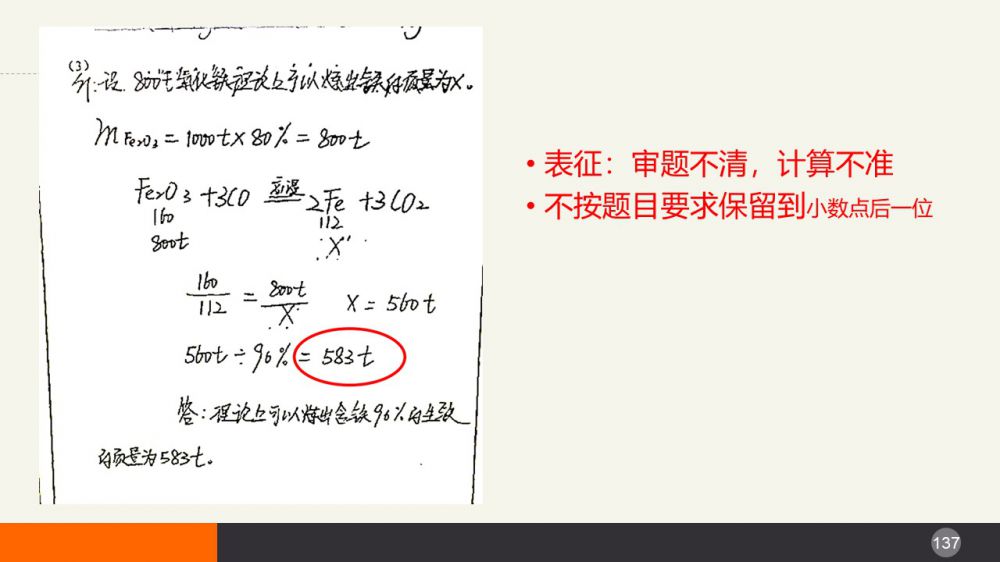 (3)
解:设 800t氧化铁理论上可以炼出含铁的质量为x。
mFe₂O₃=1000t×80%=800t
Fe₂O₃+3CO 高温 2Fe+3CO₂
160 112
800t X
160/112=800t/X X=560t
560t÷96%=583t
答:理论上可以炼出含铁96%的生铁
的质量为583t。
• 表征：审题不清，计算不准
• 不按题目要求保留到小数点后一位
137